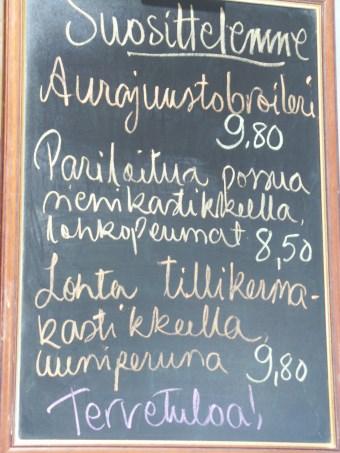 Suosittelemme
Aurajuustobroileri
9.80
Pariloitua possua
sienikastikkeella,
lohkoperunat 8,50
Lohta tillikerma-
kastikkeella,
uuniperuna 9,80
Tervetuloa!